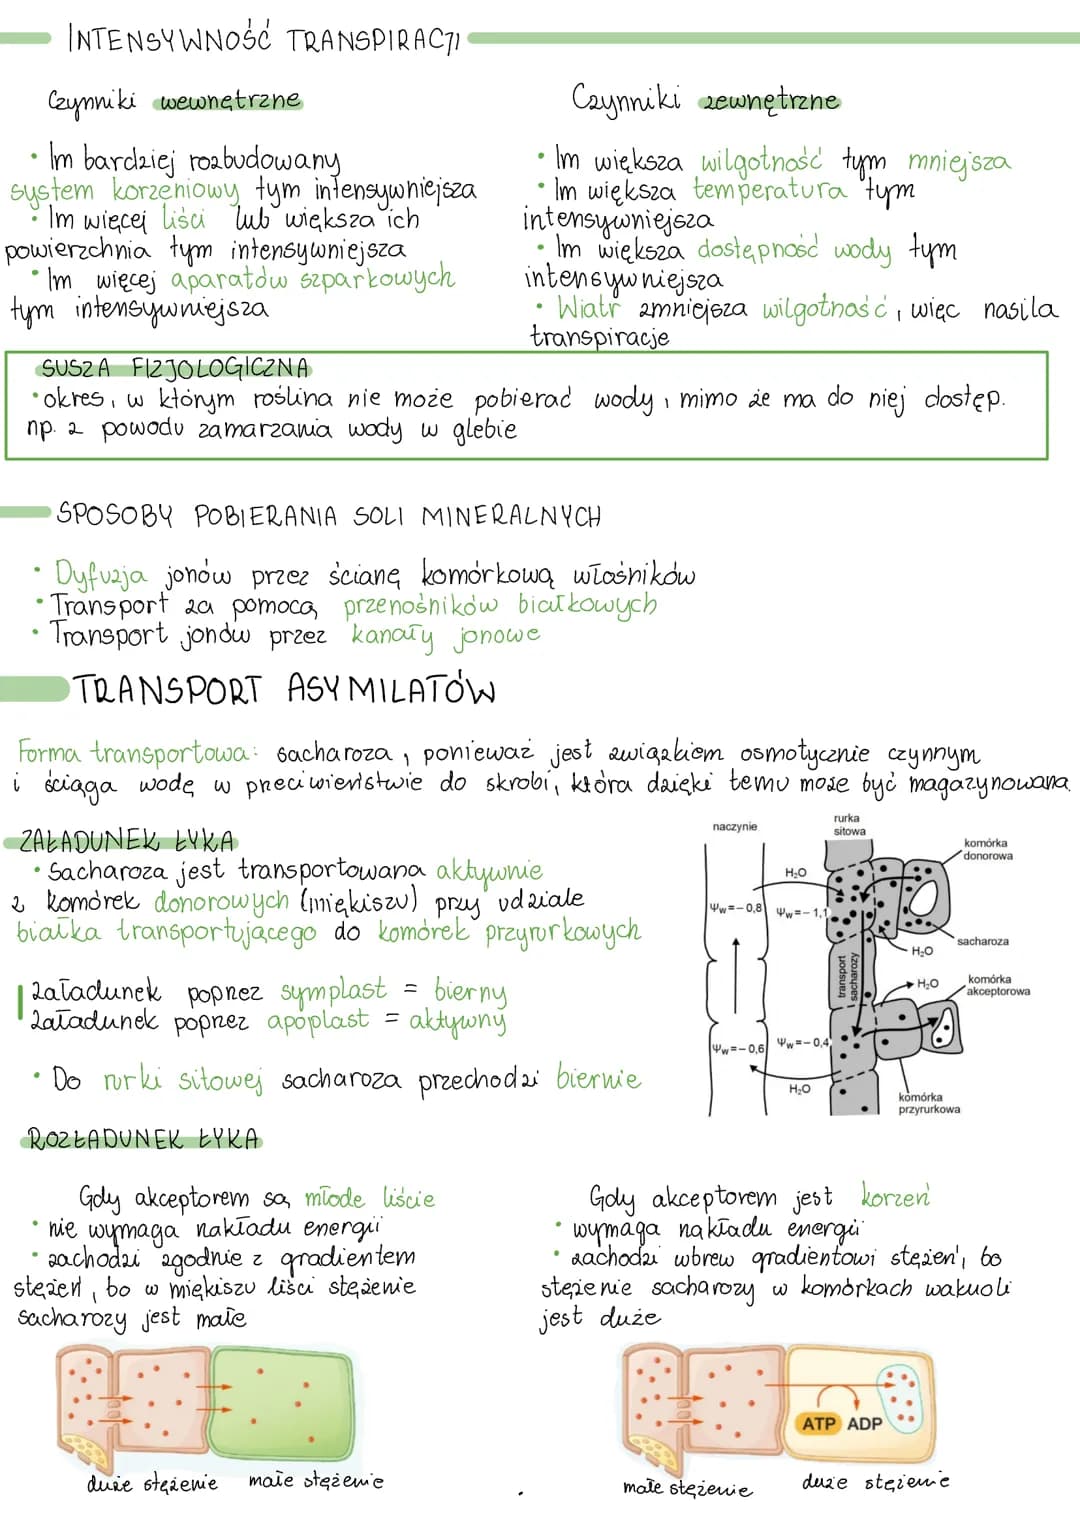 INTENSYWNOŚĆ TRANSPIRACJI
Czynniki wewnętrzne
• Im bardziej rozbudowany
system korzeniowy tym intensywniejsza
• Im więcej liści lub większa ich
powierzchnia tym intensywniejsza
• Im więcej aparatów szparkowych
tym intensywniejsza
Czynniki zewnętrzne
• Im większa wilgotność tym mniejsza
• Im większa temperatura tym
intensywniejsza
• Im większa dostępność wody tym
intensywniejsza
• Wiatr zmniejsza wilgotność, więc nasila
transpiracje
SUSZA FIZJOLOGICZNA
• okres, w którym roślina nie może pobierać wody, mimo że ma do niej dostęp.
np. z powodu zamarzania wody w glebie
SPOSOBY POBIERANIA SOLI MINERALNYCH
• Dyfuzja jonów przez ścianę komórkową włośników
• Transport za pomocą przenośników białkowych
• Transport jonów przez kanały jonowe
TRANSPORT ASYMILATÓW
Forma transportowa: sacharoza, ponieważ jest związkiem osmotycznie czynnym
i ściąga wodę w preciwieństwie do skrobi, która dzięki temu może być magazynowana
ZAŁADUNEK ŁYKA
• Sacharoza jest transportowana aktywnie
z komórek donorowych (miękiszu) przy udziale
białka transportującego do komórek przyrurkowych
załadunek poprzez symplast = bierny
załadunek poprzez apoplast = aktywny
• Do rurki sitowej sacharoza przechodzi biernie
naczynie
rurka
sitowa
komórka
donorowa
H₂O
Ψw=-0,8
Ψw=-1,1
sacharoza
H₂O
transport
sacharozy
H₂O
komórka
akceptorowa
Ψw=-0,6
Ψw=-0,4
H₂O
komórka
przyrurkowa
ROZŁADUNEK ŁYKA
Gdy akceptorem są młode liście
• nie wymaga nakładu energii
• zachodzi zgodnie z gradientem
stężeń, bo w miękiszu liści stężenie
sacharozy jest małe
duże stężenie
małe stężenie
Gdy akceptorem jest korzeń
• wymaga nakładu energii
• zachodzi wbrew gradientowi stężeń, bo
stężenie sacharozy w komórkach wakuoli
jest duże
ATP ADP
małe stężenie
duże stężenie